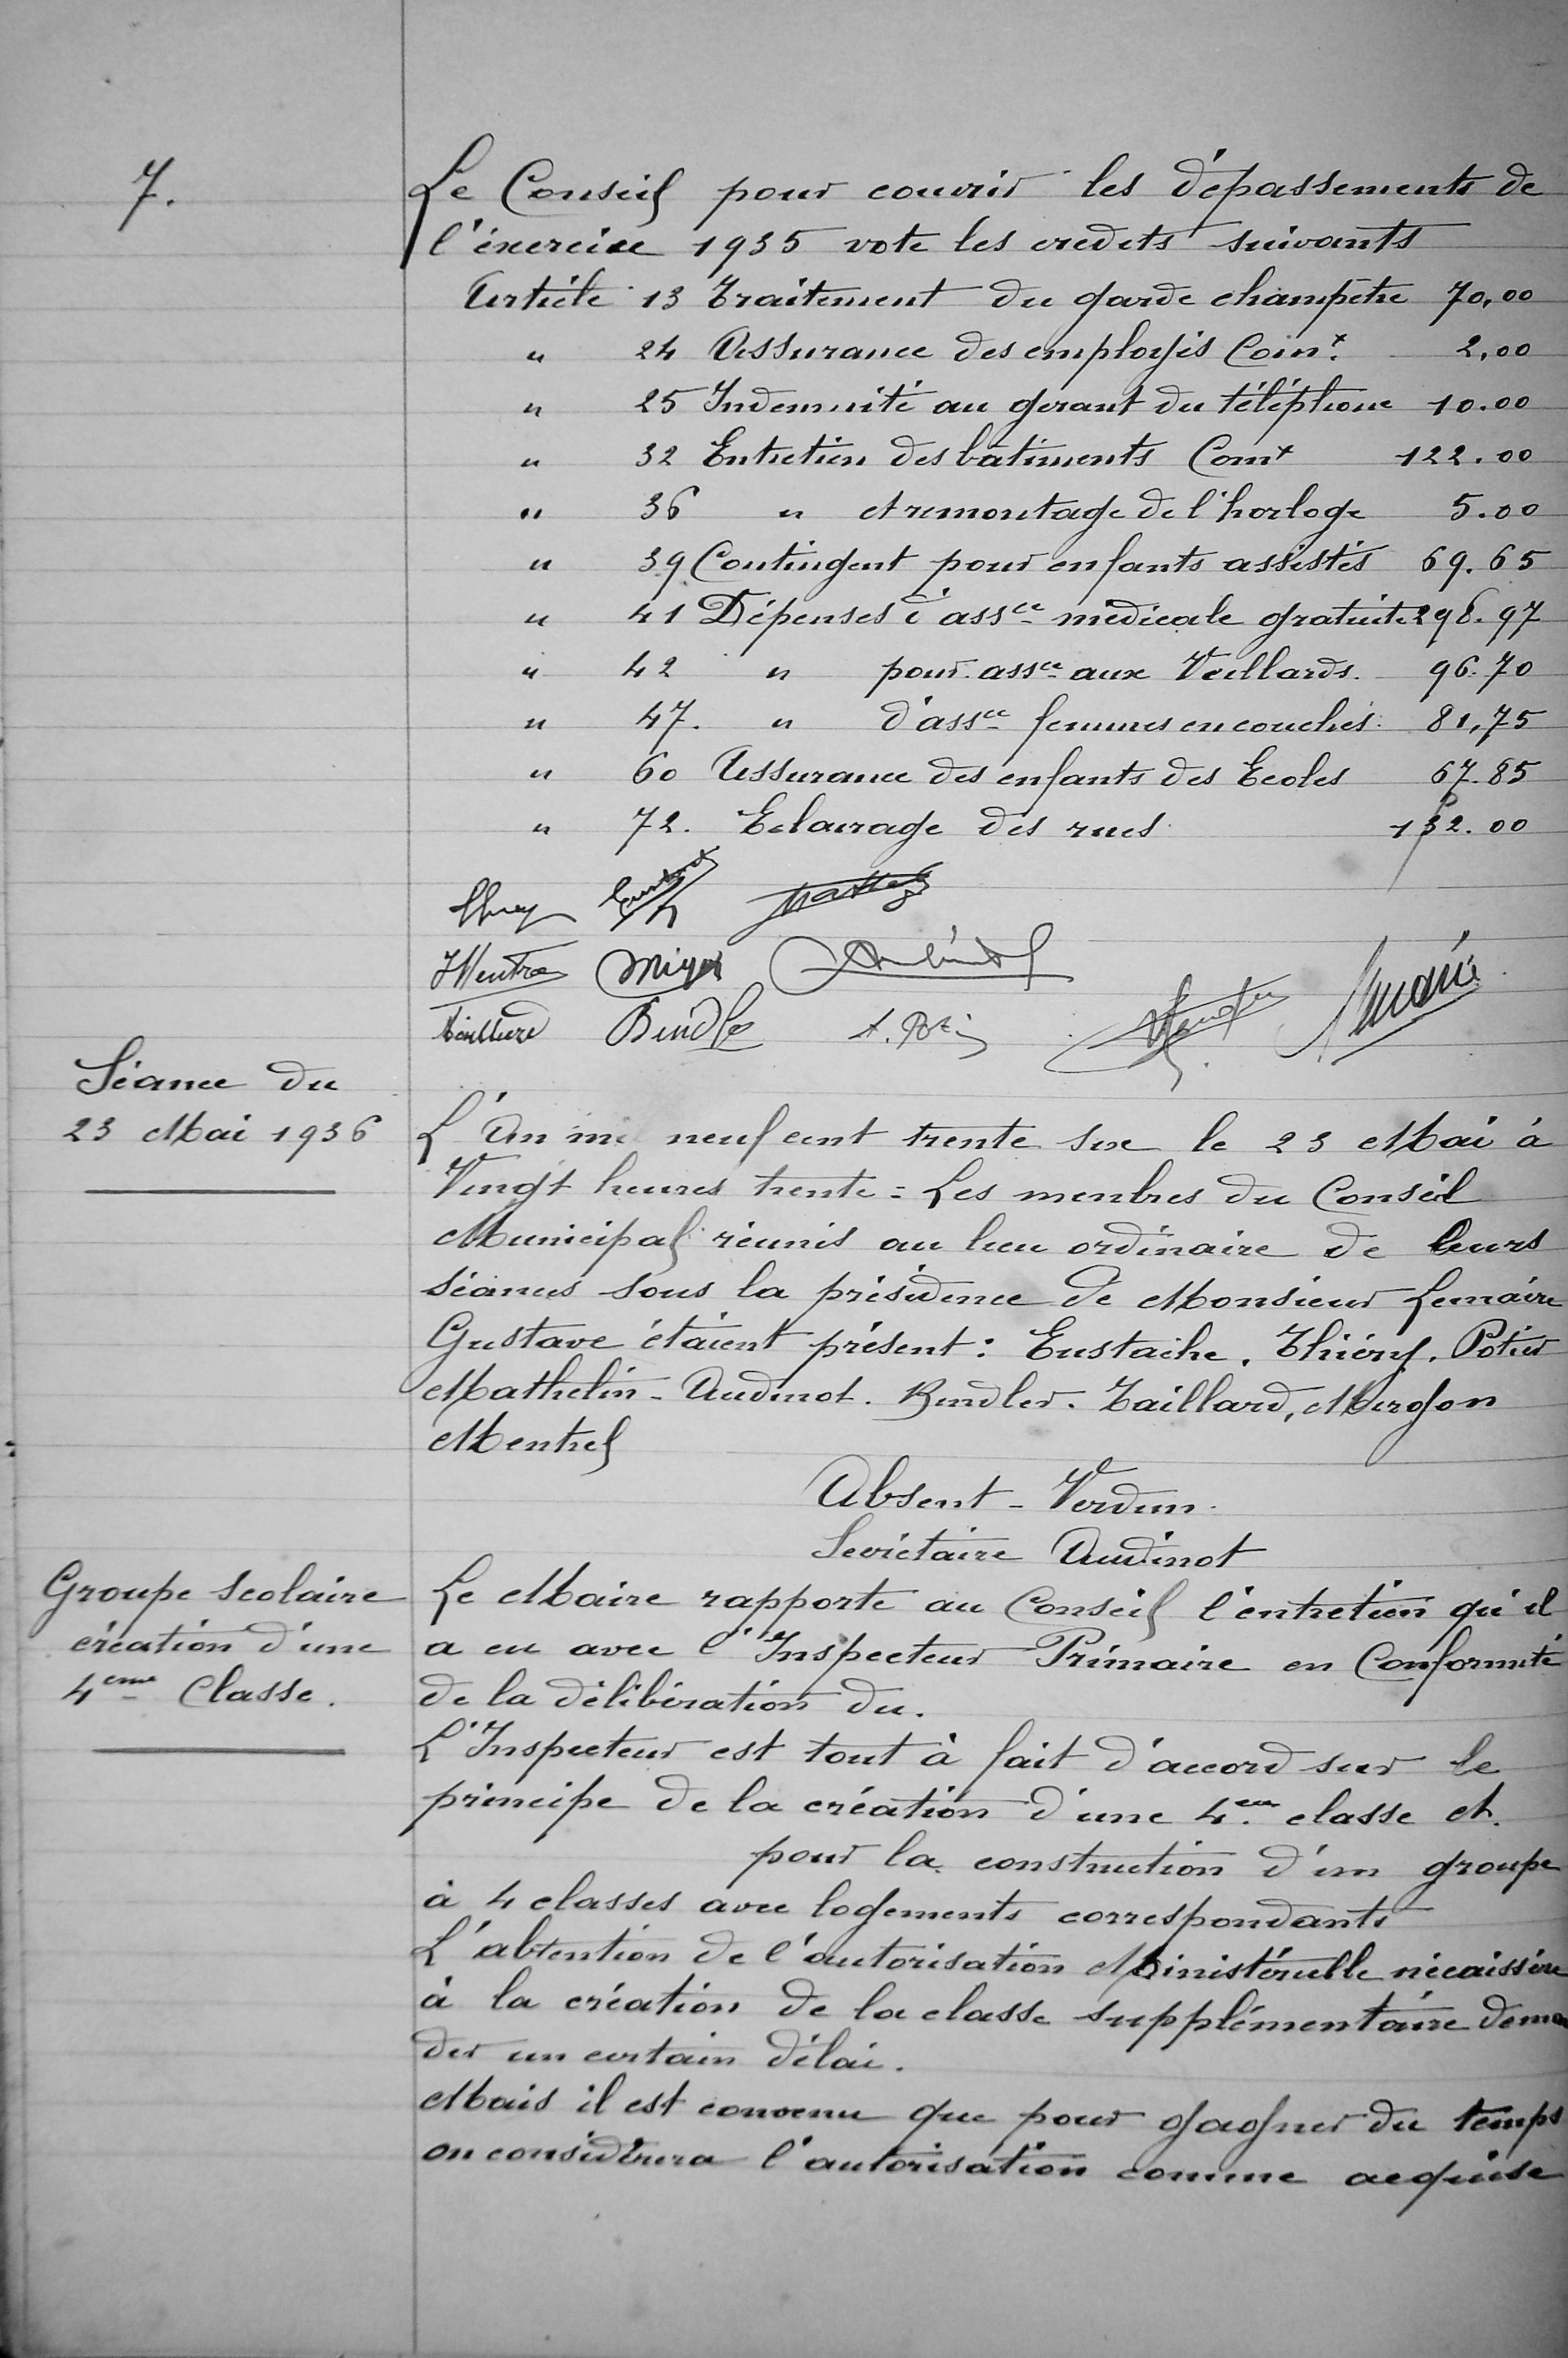 7.
Le Conseil pour couvrir les dépassements de
l'éxercice 1935 vote les credits suivants
Article 13 Traitement du garde champêtre 70,00
" 24 Assurance des employés Comx. 2,00
" 25 Indemnité au gerant du téléphone 10.00
" 32 Entretien des bâtiments Comx 122.00
" 36 " et remontage de l'horloge 5.00
" 39 Contingent pour enfants assistés 69.65
" 41 Dépenses d'assce médicale gratuite 298.97
" 42 " pour assce aux Veillards. 96.70
" 47. " d'assce femmes en couches. 81,75
" 60 Assurance des enfants des Ecoles 67.85
" 72. Eclairage des rues 132.00
Bindle
Séance du
23 Mai 1936
L'An neuf cent trente six le 23 Mai à
Vingt heures trente = Les menbres du Conseil
Municipal réunis au lieu ordinaire de leurs
séances sous la présidence de Monsieur Lemaire
Gustave étaient présent : Eustache. Thiéry. Potier
Mathelin - Audinot. Bindler. Taillard, Mirgon
Mentrel
Absent - Verdun.
Secrétaire Audinot
Groupe Scolaire
création d'une
4eme Classe.
Le Maire rapporte au Conseil l'entretien qu'il
a eu avec l'Inspecteur Primaire en Conformité
de la délibération du.
L'Inspecteur est tout à fait d'accord sur le
principe de la création d'une 4eme classe et.
pour la construction d'un groupe
à 4 classes avec logements correspondants
L'abtention de l'autorisation Ministérielle nécaissère
à la création de la classe supplémentaire deman
der un certain délai.
Mais il est convenu que pour gagner du temps
on considèrera l'autorisation comme acquise